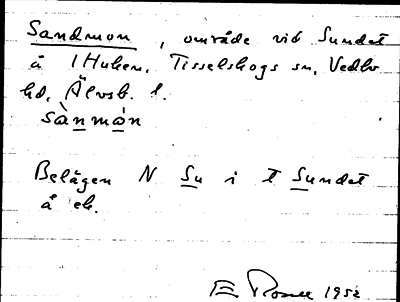 Sandmon, område vid Sundet
å 1 Huken. Tisselskogs sn, Vedbo
hd, Älvsb. l.
sànmón
Belägen N Su i t Sundet
å ek.
1952